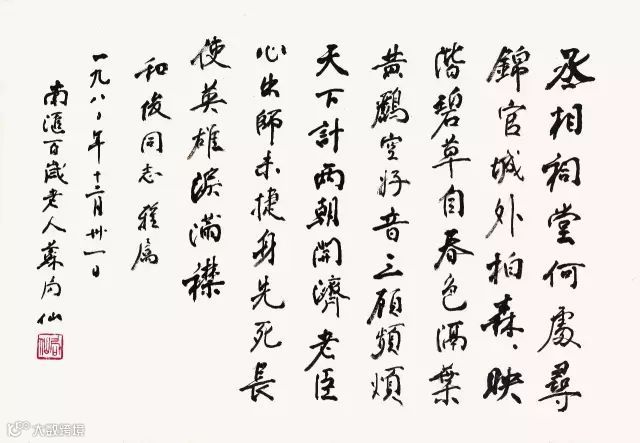 丞相祠堂何處尋
錦官城外柏森、映
階碧草自春色隔葉
黃鸝空好音三顧頻煩
天下計兩朝開濟老臣
心出師未捷身先死長
使英雄淚滿襟
和俊同志雅屬
一九八、年十二月卅一日
南滙百歲老人蘇局仙
大数跨境